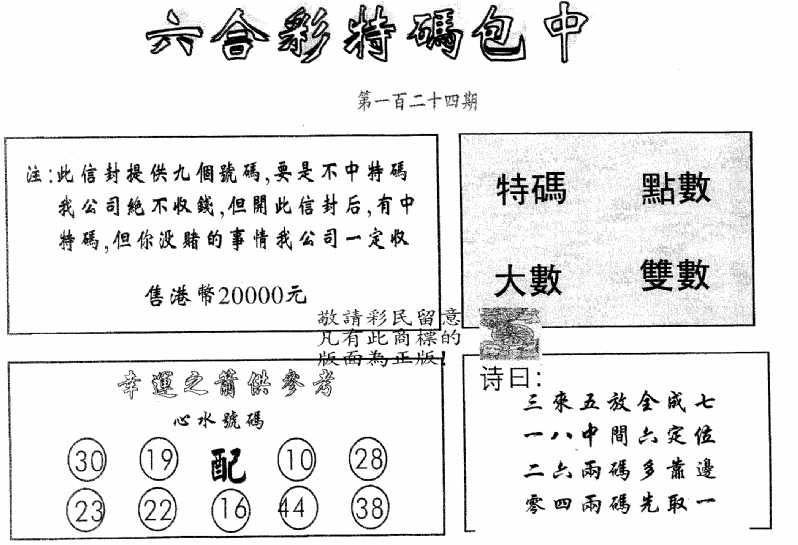 六合彩特碼包中
第一百二十四期
注:此信封提供九個號碼,要是不中特碼
我公司絶不收錢,但開此信封后,有中
特碼,但你没賭的事情我公司一定收
售港幣20000元
特碼 點數
大數 雙數
敬請彩民留意
凡有此商標的
版面為正版!
幸運之箭供參考
心水號碼
30 19 配 10 28
23 22 16 44 38
诗曰:
三來五放全成七
一八中間六定位
二六兩碼多靠邊
零四兩碼先取一